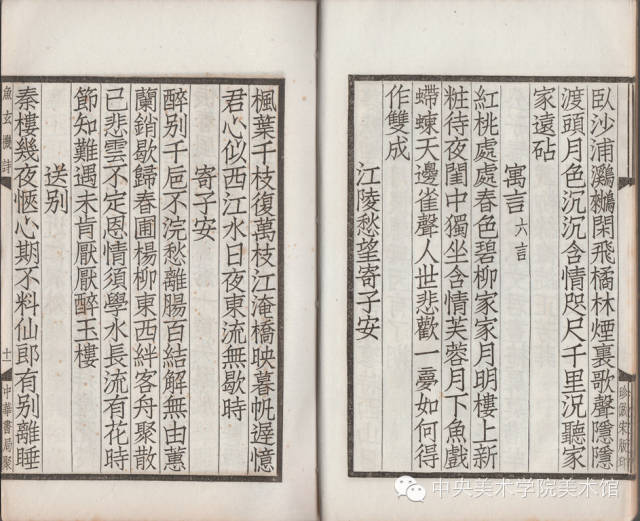 臥沙浦鸂鶒閑飛橘林煙裏歌聲隱隱
渡頭月色沉沉含情咫尺千里況聽家
家遠砧
寓言 六言
紅桃處處春色碧柳家家月明樓上新
粧待夜閨中獨坐含情芙蓉月下魚戲
螮蝀天邊雀聲人世悲歡一夢如何得
作雙成
江陵愁望寄子安
楓葉千枝復萬枝江淹橋映暮帆遲憶
君心似西江水日夜東流無歇時
寄子安
醉別千巵不浣愁離腸百結解無由蕙
蘭銷歇歸春圃楊柳東西絆客舟聚散
已悲雲不定恩情須學水長流有花時
節知難遇未肯厭厭醉玉樓
送別
秦樓幾夜愜心期不料仙郎有別離睡
魚玄機詩
十一
中華書局聚
珍倣宋版印
中央美术学院美术馆